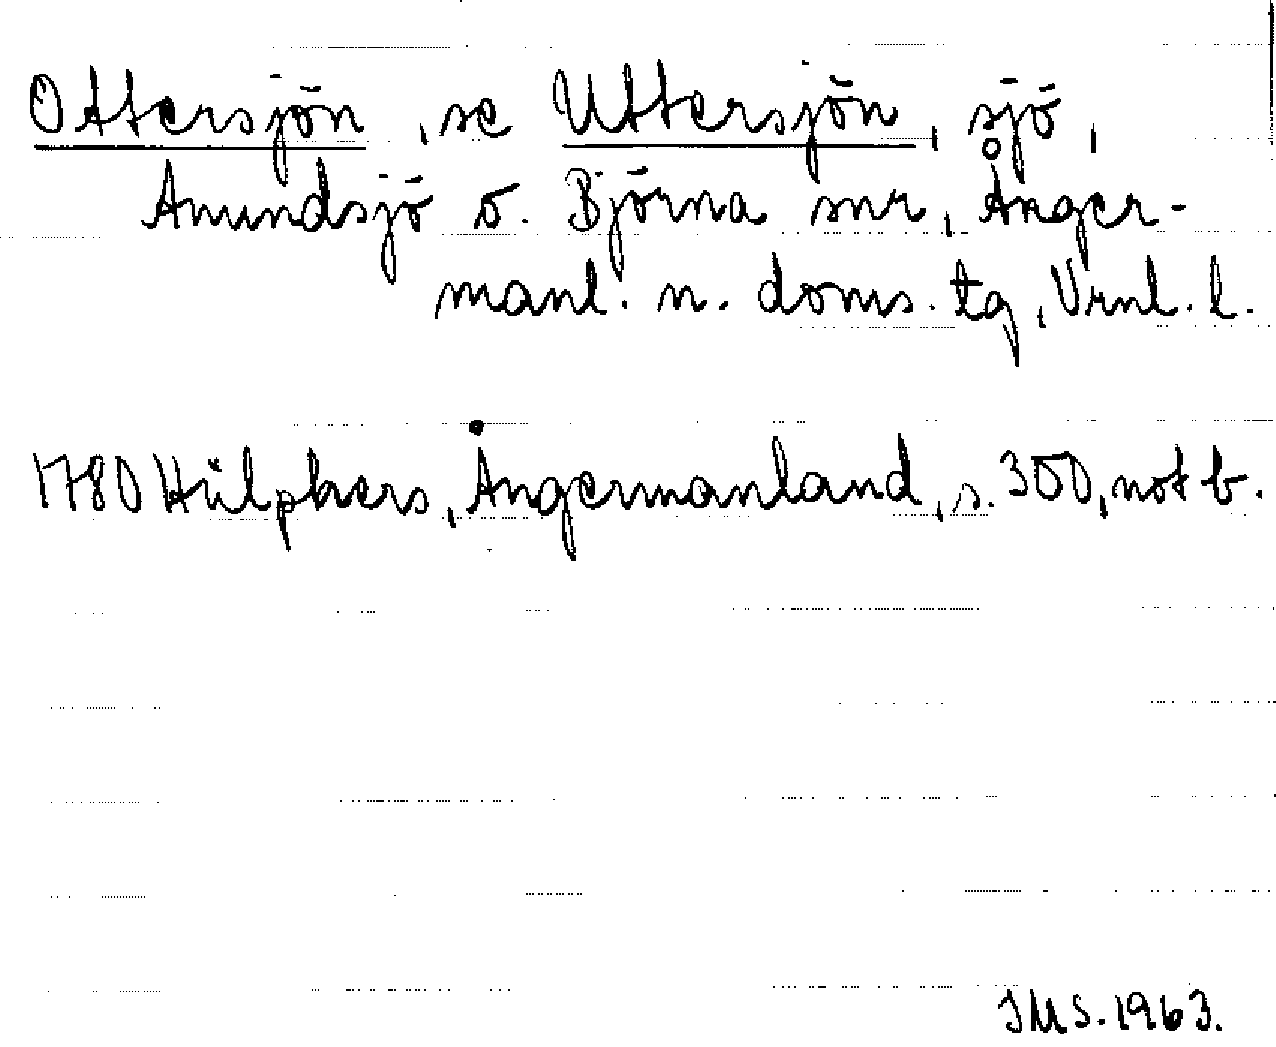 Ottersjön, se Uttersjön, sjö,
Anundsjö o. Björna snr, Ånger-
manl. n. doms. tg, Vrnl. l.
1780 Hülphers, Ångermanland, s. 300, not b.
JMS. 1963.